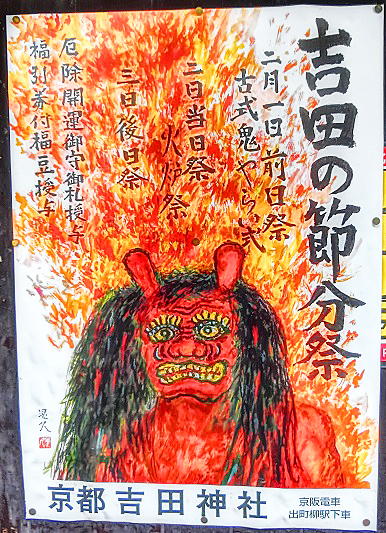 吉田の節分祭
二月一日 前日祭
古式鬼やらい式
二日当日祭
火炉祭
三日後日祭
厄除開運御守御札授与
福引券付福豆授与
京都 吉田神社
京阪電車
出町柳駅下車